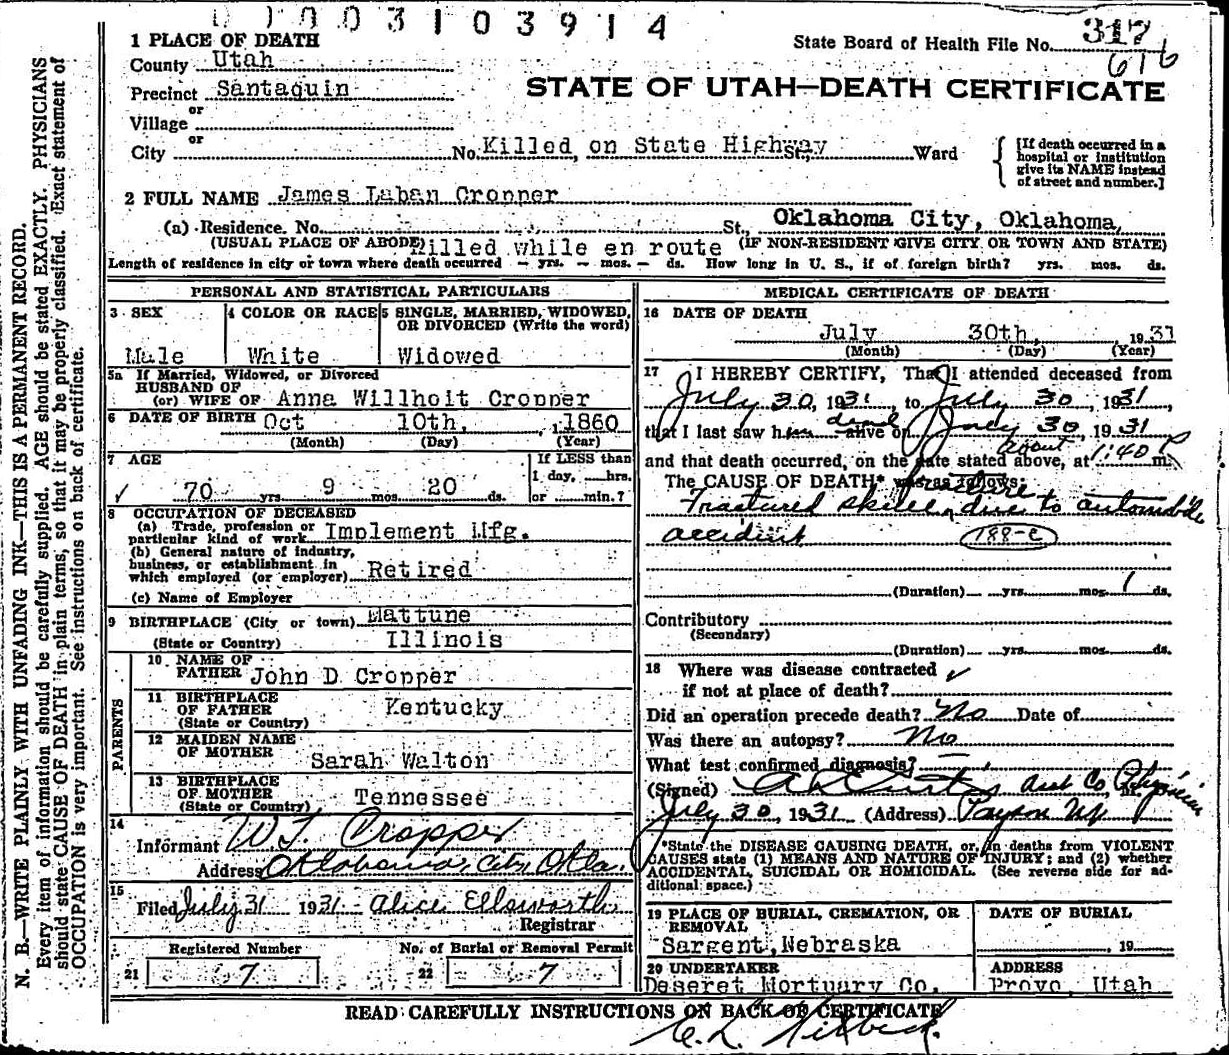 0 1 0 0 3 1 0 3 9 1 4
1 PLACE OF DEATH
State Board of Health File No. 317
616
County Utah
STATE OF UTAH—DEATH CERTIFICATE
Precinct Santaquin
or
Village
or
City No. Killed on State Highway St., Ward
[If death occurred in a
hospital or institution
give its NAME instead
of street and number.]
2 FULL NAME James Laban Cropper
(a) Residence. No. St., Oklahoma City, Oklahoma,
(USUAL PLACE OF ABODE) Killed while en route (IF NON-RESIDENT GIVE CITY OR TOWN AND STATE)
Length of residence in city or town where death occurred – yrs. – mos. – ds. How long in U. S., if of foreign birth? yrs. mos. ds.
PERSONAL AND STATISTICAL PARTICULARS
3 SEX
Male
4 COLOR OR RACE
White
5 SINGLE, MARRIED, WIDOWED,
OR DIVORCED (Write the word)
Widowed
5a If Married, Widowed, or Divorced
HUSBAND OF
(or) WIFE OF Anna Willhoit Cropper
6 DATE OF BIRTH Oct 10th, 1860
(Month) (Day) (Year)
7 AGE
70 yrs 9 mos 20 ds.
If LESS than
1 day, hrs.
or min.?
8 OCCUPATION OF DECEASED
(a) Trade, profession or
particular kind of work Implement Mfg.
(b) General nature of industry,
business, or establishment in
which employed (or employer) Retired
(c) Name of Employer
9 BIRTHPLACE (City or town) Mattune
(State or Country) Illinois
PARENTS
10 NAME OF
FATHER John D Cropper
11 BIRTHPLACE
OF FATHER Kentucky
(State or Country)
12 MAIDEN NAME
OF MOTHER Sarah Walton
13 BIRTHPLACE
OF MOTHER
(State or Country) Tennessee
14
Informant W.T. Cropper
Address Oklahoma City Okla.
15
Filed July 31 1931 Alice Ellsworth
Registrar
Registered Number
21 7
No. of Burial or Removal Permit
22 7
MEDICAL CERTIFICATE OF DEATH
16 DATE OF DEATH
July 30th, 1931
(Month) (Day) (Year)
17 I HEREBY CERTIFY, That I attended deceased from
July 30, 1931, to July 30, 1931,
that I last saw him dead alive on July 30, 1931
and that death occurred, on the date stated above, at about 1:40 P m.
The CAUSE OF DEATH* was as follows:
Fractured skull, fracture due to automobile
accident 188-c
(Duration) yrs. mos. 1 ds.
Contributory
(Secondary)
(Duration) yrs. mos. ds.
18 Where was disease contracted
if not at place of death?
Did an operation precede death? No Date of
Was there an autopsy? No
What test confirmed diagnosis?
(Signed) A L Curtis Asst Co. Physician
July 30, 1931 (Address) Payson Ut
*State the DISEASE CAUSING DEATH, or, in deaths from VIOLENT
CAUSES state (1) MEANS AND NATURE OF INJURY; and (2) whether
ACCIDENTAL, SUICIDAL OR HOMICIDAL. (See reverse side for ad-
ditional space.)
19 PLACE OF BURIAL, CREMATION, OR
REMOVAL
Sargent, Nebraska
DATE OF BURIAL
, 19
20 UNDERTAKER
Deseret Mortuary Co.
ADDRESS
Provo, Utah
READ CAREFULLY INSTRUCTIONS ON BACK OF CERTIFICATE
N. B.—WRITE PLAINLY WITH UNFADING INK—THIS IS A PERMANENT RECORD.
Every item of information should be carefully supplied. AGE should be stated EXACTLY. PHYSICIANS
should state CAUSE OF DEATH in plain terms, so that it may be properly classified. Exact statement of
OCCUPATION is very important. See instructions on back of certificate.